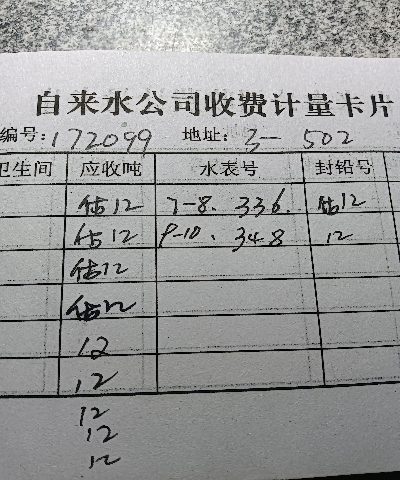 自来水公司收费计量卡片
编号:172099 地址:3-502
卫生间 应收吨 水表号 封铅号
估12 7-8. 336. 估12
估12 9-10. 348 12
估12
估12
12
12
12
12
12